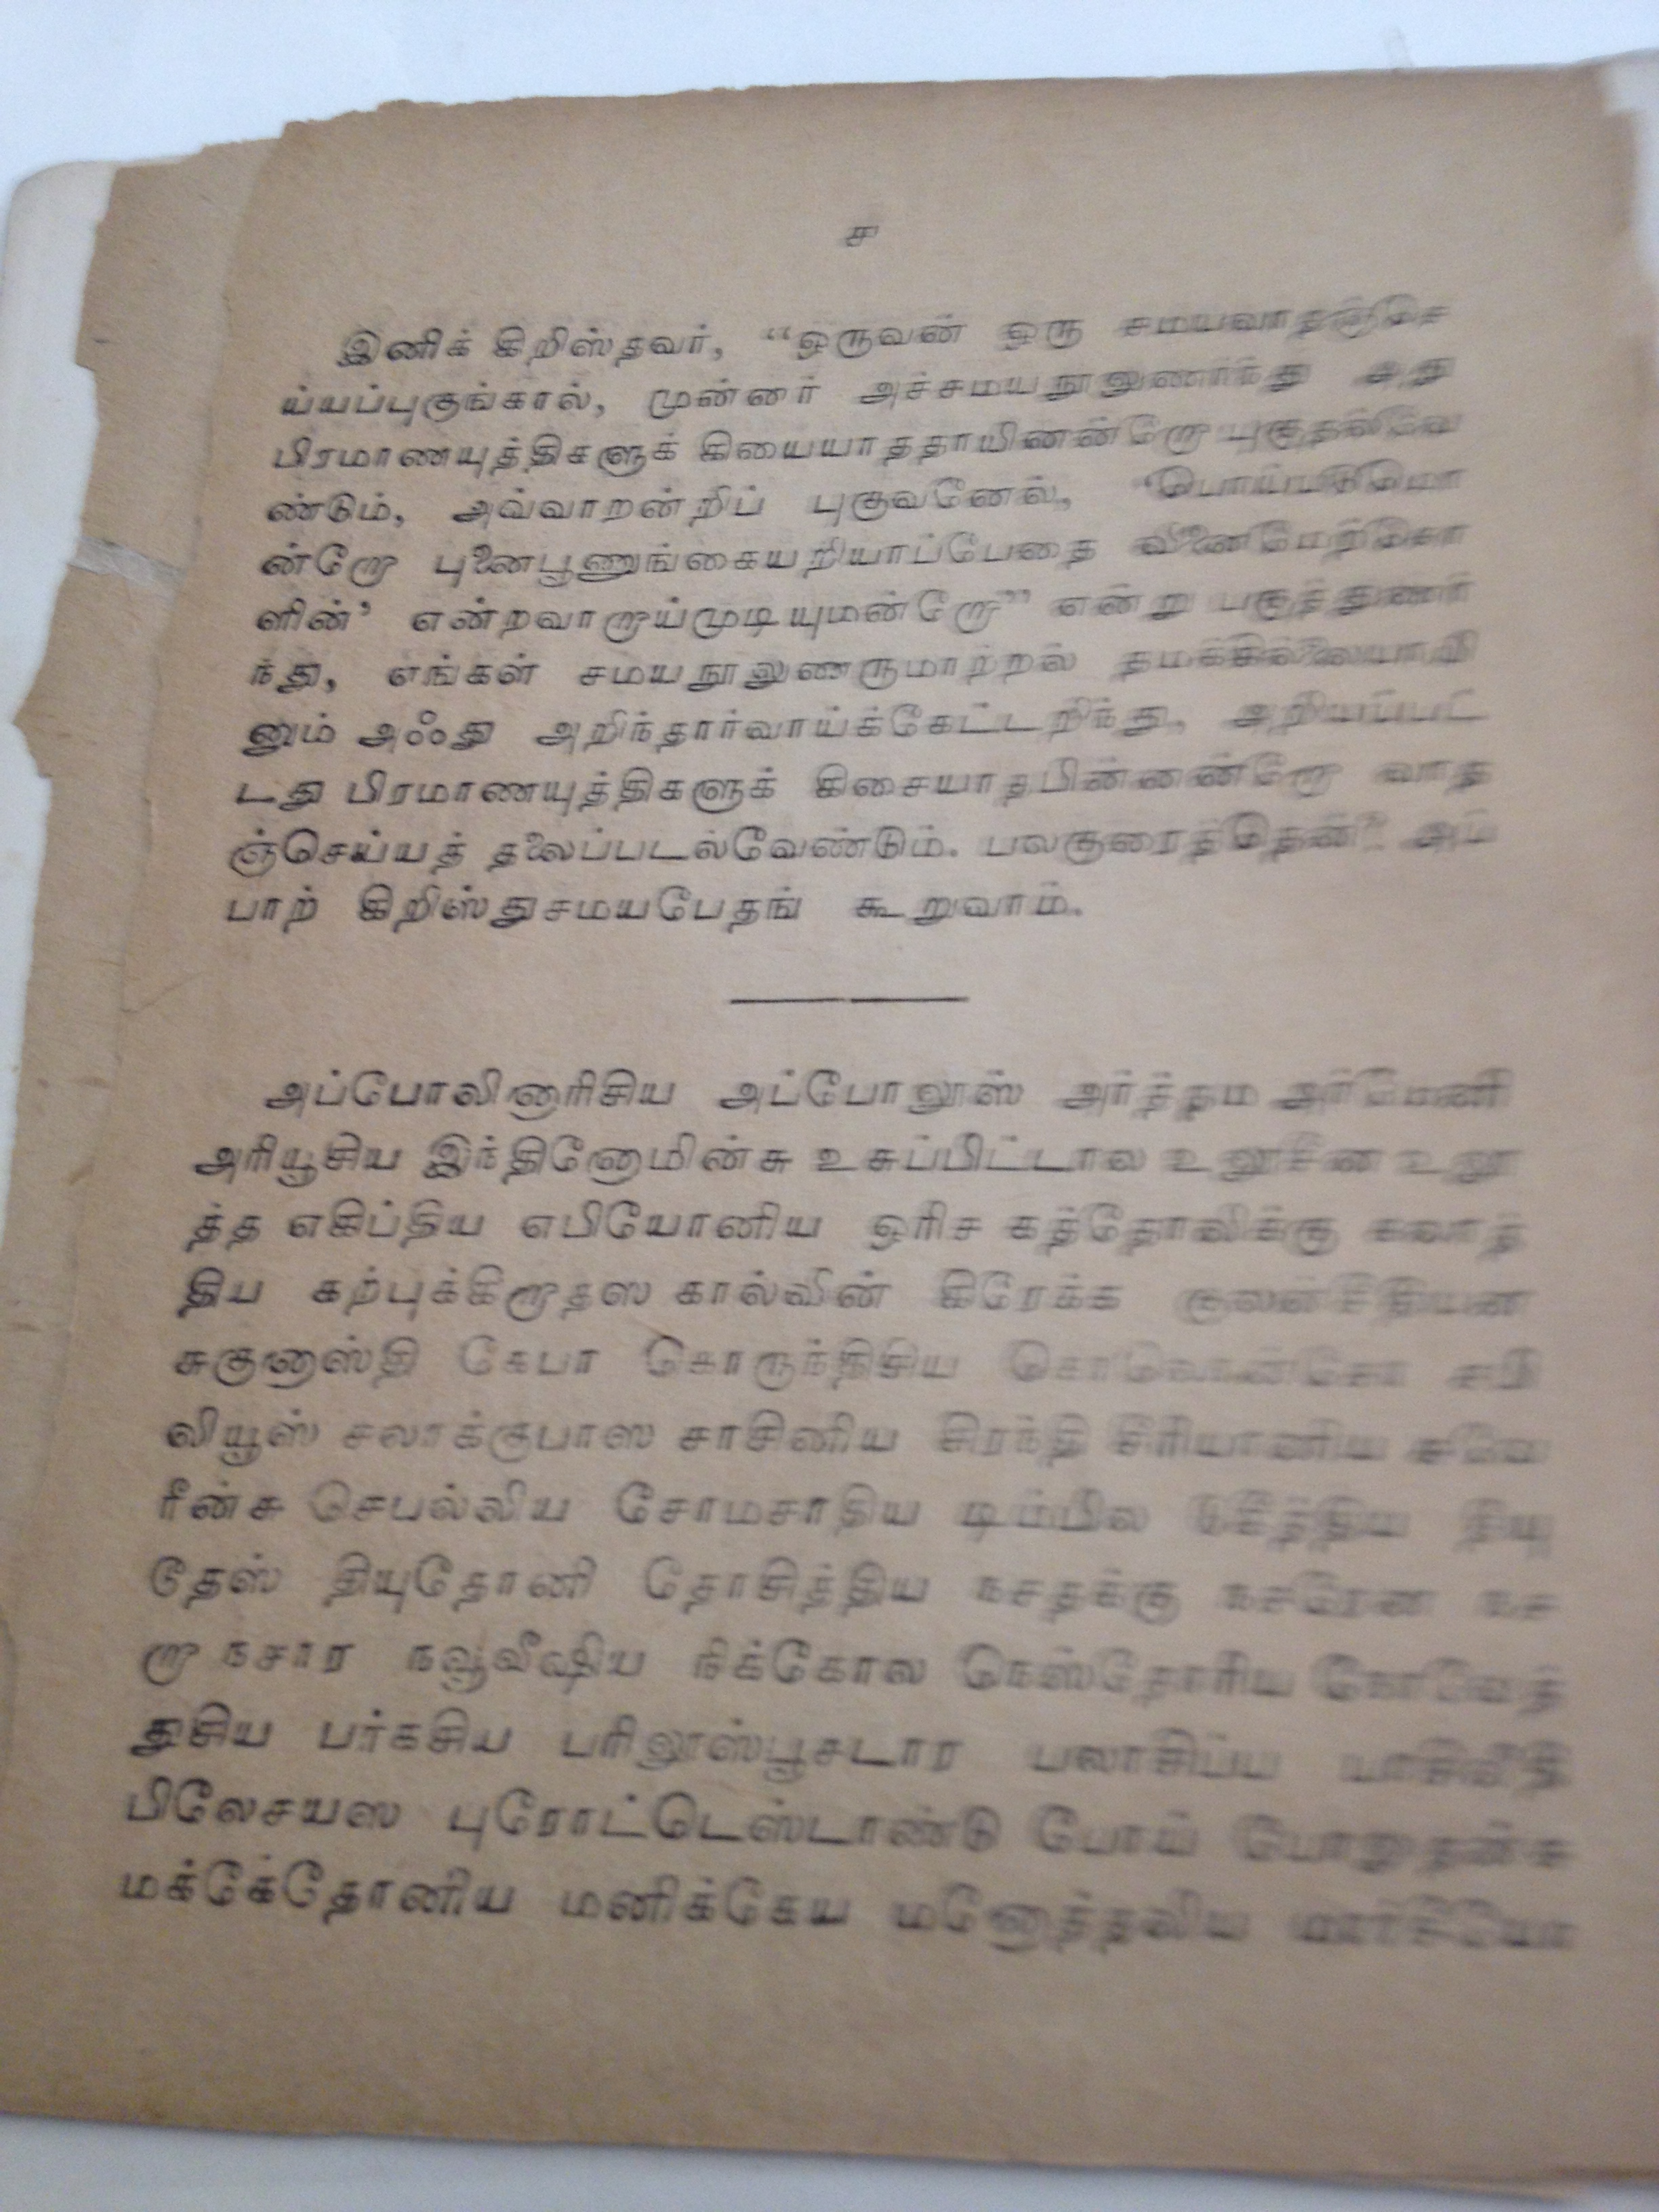 ச
இனிக் கிறிஸ்தவர், “ஒருவன் ஒரு சமயவாதஞ்செ
ய்யப்புகுங்கால், முன்னர் அச்சமயநூலுணர்ந்து அது
பிரமாணயுத்திகளுக் கியையாததாயினன்றோ புகுதல்வே
ண்டும், அவ்வாறன்றிப் புகுவனேல், ‘பொய்படுமொ
ன்றோ புனைபூணுங்கையறியாப்பேதை வினைமேற்கொ
ளின்’ என்றவாறாய்முடியுமன்றோ” என்று பகுத்துணர்
ந்து, எங்கள் சமயநூலுணருமாற்றல் தமக்கில்லையாயி
னும் அஃது அறிந்தார்வாய்க்கேட்டறிந்து, அறியப்பட்
டது பிரமாணயுத்திகளுக் கிசையாதபின்னன்றோ வாத
ஞ்செய்யத் தலைப்படல்வேண்டும். பலகுரைத்தென்? அப்
பாற் கிறிஸ்துசமயபேதங் கூறுவாம்.
அப்போலினாரிசிய அப்போலூஸ் அர்த்தம அர்மேனி
அரியூசிய இந்தினோமின்சு உசுப்பிட்டால உலூசின உலூ
த்த எகிப்திய எபியோனிய ஒரிச கத்தோலிக்கு கலாத்
திய கற்புக்கிறாதஸ கால்வின் கிரேக்க
சுகுனாஸ்தி கேபா கொருந்திசிய
லியூஸ் சலாக்குபாஸ சாசினிய சிரந்தி சீரியாணிய
ரீன்சு செபல்லிய சோமசாதிய டிம்பில
டுதேஸ் தியுதோணி தோசித்திய நசதக்கு நசரேன நச
றா நசார நவூவீஷிய நிக்கோல நெஸ்தோரிய
துசிய பர்கசிய பரிலூஸ்பூசடார
பிலேசயஸ புரோட்டெஸ்டாண்டு போய்
மக்கேதோனிய மனிக்கேய மனோத்தலிய மார்சீயோ